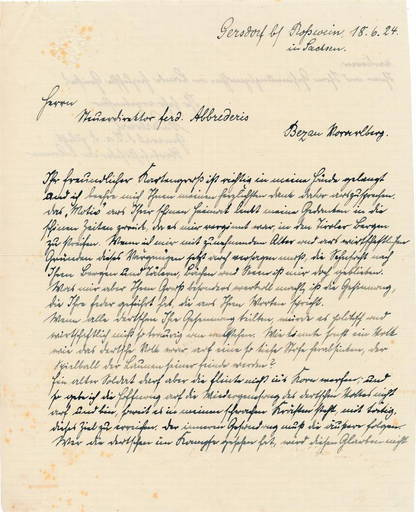 Gersdorf b/ Roßwein, 18.6.24.
in Sachsen.
Herrn
Steuerdirektor Ferd. Abbrederis
Bezau Vorarlberg.
Ihr freundlicher Kartengruß ist richtig in meine Hände gelangt
und ich beehre mich Ihnen meinen herzlichsten Dank dafür auszusprechen.
Das „Motiv" aus Ihrer schönen Heimat lenkt meine Gedanken in die
schönen Zeiten zurück, da es mir vergönnt war, in den Tiroler Bergen
zu Wenn ich mir mit zunehmendem Alter und aus wirtschaftlichen
Gründen dieses Vergnügen jetzt auch versagen muß, die Sehnsucht nach
Ihren Bergen und Tälern, und Seen ist mir doch geblieben.
Was mir aber Ihren Gruß besonders wertvoll macht, ist die Gesinnung,
die Ihre Feder geführt hat, die aus Ihren Worten spricht.
Wenn alle Deutschen Ihre Gesinnung teilten, würde es politisch und
wirtschaftlich nicht so traurig um uns stehen. Wie könnte sonst ein Volk
wie das deutsche Volk war auf eine so tiefe Stufe herabsinken, der
Spielball der Launen seiner Feinde werden?
Ein alter Soldat darf aber die Flinte nicht ins Korn werfen; und
so gebe ich die Hoffnung auf die Wiedergenesung des deutschen Volkes nicht
auf und bin, soweit es in meinen schwachen Kräften steht, mit tätig,
dieses Ziel zu erreichen. Der inneren Gesundung muß die äußere folgen.
Wer die Deutschen im Kampfe gesehen hat, wird diesen Glauben nicht